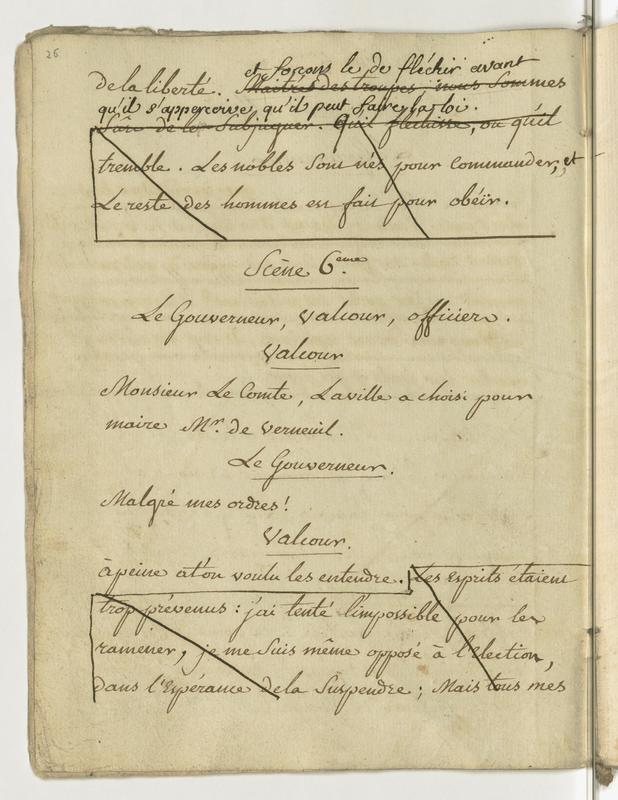 26
et forçons le de fléchir avant
de la liberté. Maitres des troupes, nous sommes
qu'il s'apperçoive, qu'il peut faire la loi.
Sûrs de le Subjuguer. Qu'il fléchisse, ou qu'il
tremble. Les nobles sont nés pour commander, et
Le reste des hommes est fait pour obéir.
Scène 6.eme
Le Gouverneur, Valcour, officiers.
Valcour
Monsieur Le Comte, La ville a choisi pour
maire Mr. de Verneuil.
Le Gouverneur.
Malgré mes ordres!
Valcour.
à peine a t'on voulu les entendre. Les Esprits étaient
trop prévenus: j'ai tenté l'impossible pour les
ramener, je me suis même opposé à l'Election,
dans l'Espérance de la Suspendre; Mais tous mes